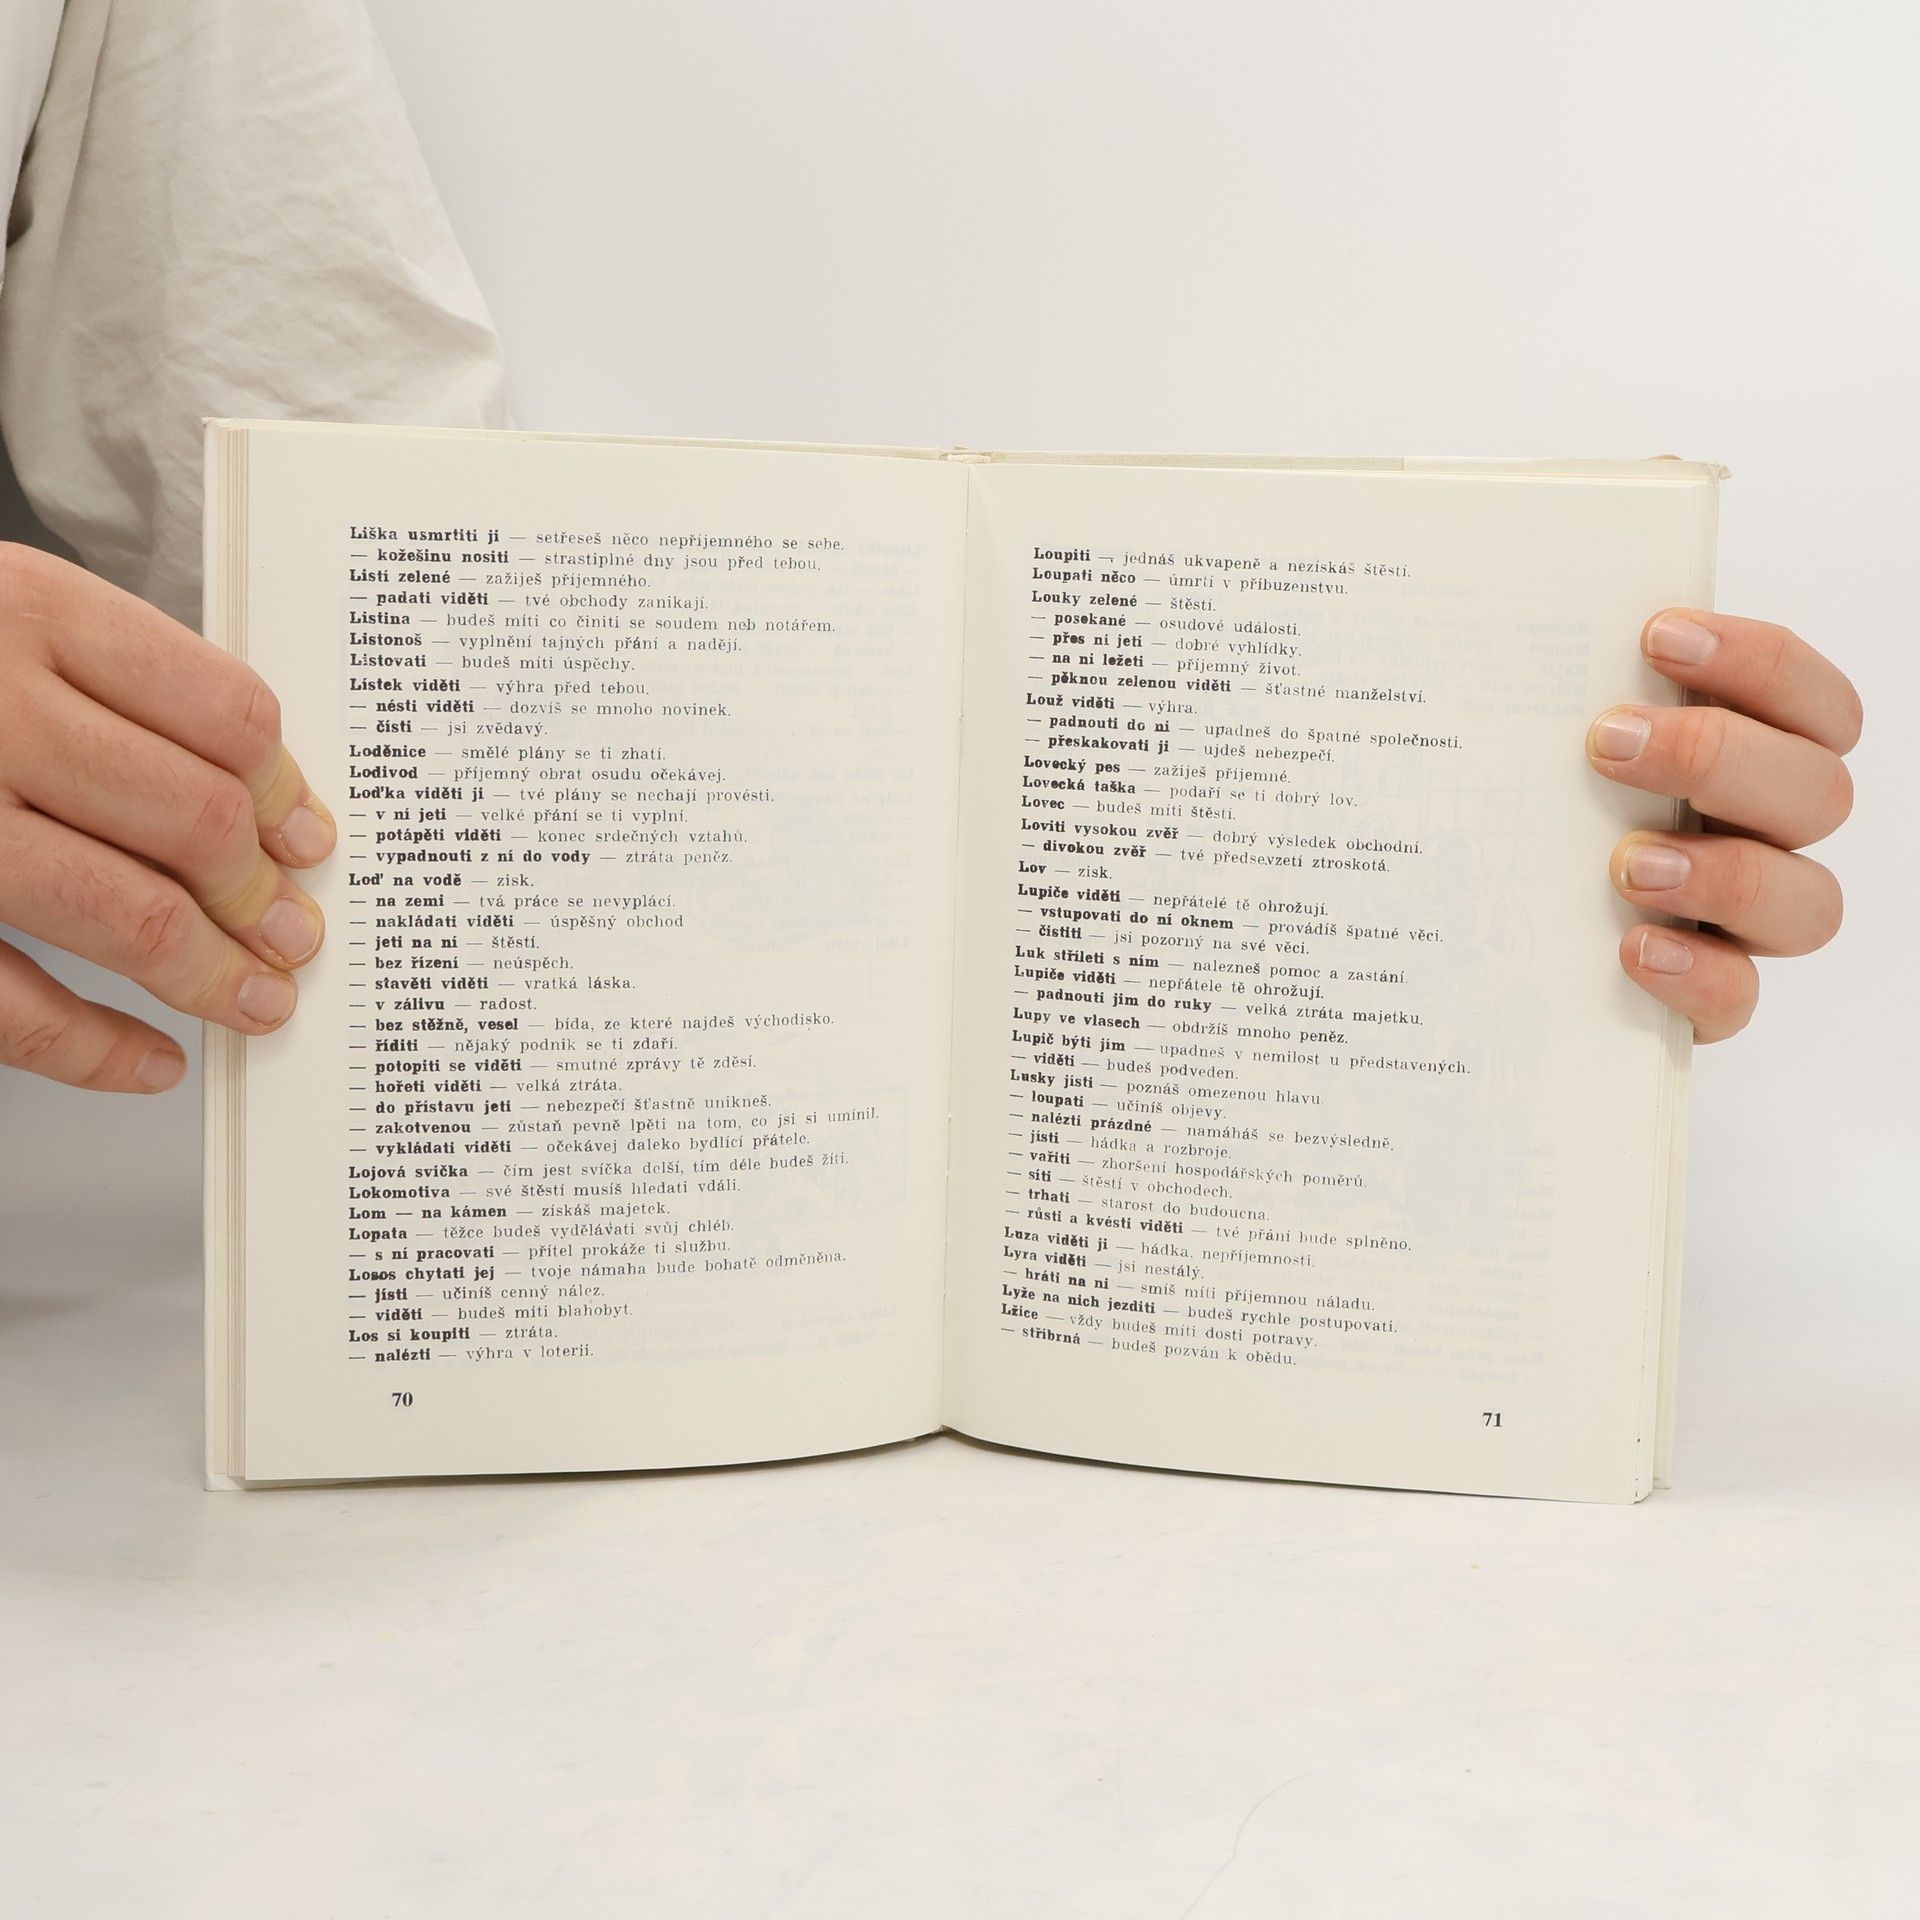 Liška usmrtiti ji — setřeseš něco nepříjemného se sebe.
— kožešinu nositi — strastiplné dny jsou před tebou.
Listí zelené — zažiješ příjemného.
— padati viděti — tvé obchody zanikají.
Listina — budeš míti co činiti se soudem neb notářem.
Listonoš — vyplnění tajných přání a nadějí.
Listovati — budeš míti úspěchy.
Lístek viděti — výhra před tebou.
— nésti viděti — dozvíš se mnoho novinek.
— čísti — jsi zvědavý.
Loděnice — smělé plány se ti zhatí.
Lodivod — příjemný obrat osudu očekávej.
Loďka viděti ji — tvé plány se nechají provésti.
— v ní jeti — velké přání se ti vyplní.
— potápěti viděti — konec srdečných vztahů.
— vypadnouti z ní do vody — ztráta peněz.
Loď na vodě — zisk.
— na zemi — tvá práce se nevyplácí.
— nakládati viděti — úspěšný obchod
— jeti na ní — štěstí.
— bez řízení — neúspěch.
— stavěti viděti — vratká láska.
— v zálivu — radost.
— bez stěžně, vesel — bída, ze které najdeš východisko.
— říditi — nějaký podnik se ti zdaří.
— potopiti se viděti — smutné zprávy tě zděsí.
— hořeti viděti — velká ztráta.
— do přístavu jeti — nebezpečí šťastně unikneš.
— zakotvenou — zůstaň pevně lpěti na tom, co jsi si umínil.
— vykládati viděti — očekávej daleko bydlící přátele.
Lojová svíčka — čím jest svíčka delší, tím déle budeš žíti.
Lokomotiva — své štěstí musíš hledati vdáli.
Lom — na kámen — získáš majetek.
Lopata — těžce budeš vydělávati svůj chléb.
— s ní pracovati — přítel prokáže ti službu.
Losos chytati jej — tvoje námaha bude bohatě odměněna.
— jísti — učiníš cenný nález.
— viděti — budeš míti blahobyt.
Los si koupiti — ztráta.
— nalézti — výhra v loterii.
70
Loupiti — jednáš ukvapeně a nezískáš štěstí.
Loupati něco — úmrtí v příbuzenstvu.
Louky zelené — štěstí.
— posekané — osudové události.
— přes ni jeti — dobré vyhlídky.
— na ni ležeti — příjemný život.
— pěknou zelenou viděti — šťastné manželství.
Louž viděti — výhra.
— padnouti do ni — upadneš do špatné společnosti.
— přeskakovati ji — ujdeš nebezpečí.
Lovecký pes — zažiješ příjemné.
Lovecká taška — podaří se ti dobrý lov.
Lovec — budeš míti štěstí.
Loviti vysokou zvěř — dobrý výsledek obchodní.
— divokou zvěř — tvé předsevzetí ztroskotá.
Lov — zisk.
Lupiče viděti — nepřátelé tě ohrožují.
— vstupovati do ní oknem — provádíš špatné věci.
— čístiti — jsi pozorný na své věci.
Luk stříleti s ním — nalezneš pomoc a zastání.
Lupiče viděti — nepřátele tě ohrožují.
— padnouti jim do ruky — velká ztráta majetku.
Lupy ve vlasech — obdržíš mnoho peněz.
Lupič býti jím — upadneš v nemilost u představených.
— viděti — budeš podveden.
Lusky jísti — poznáš omezenou hlavu.
— loupati — učiníš objevy.
— nalézti prázdné — namáháš se bezvýsledně.
— jísti — hádka a rozbroje.
— vařiti — zhoršení hospodářských poměrů.
— síti — štěstí v obchodech.
— trhati — starost do budoucna.
— růsti a kvésti viděti — tvé přání bude splněno.
Luza viděti ji — hádka, nepříjemnosti.
Lyra viděti — jsi nestálý.
— hráti na ni — smíš míti příjemnou náladu.
Lyže na nich jezditi — budeš rychle postupovati.
Lžice — vždy budeš míti dosti potravy.
— stříbrná — budeš pozván k obědu.
71